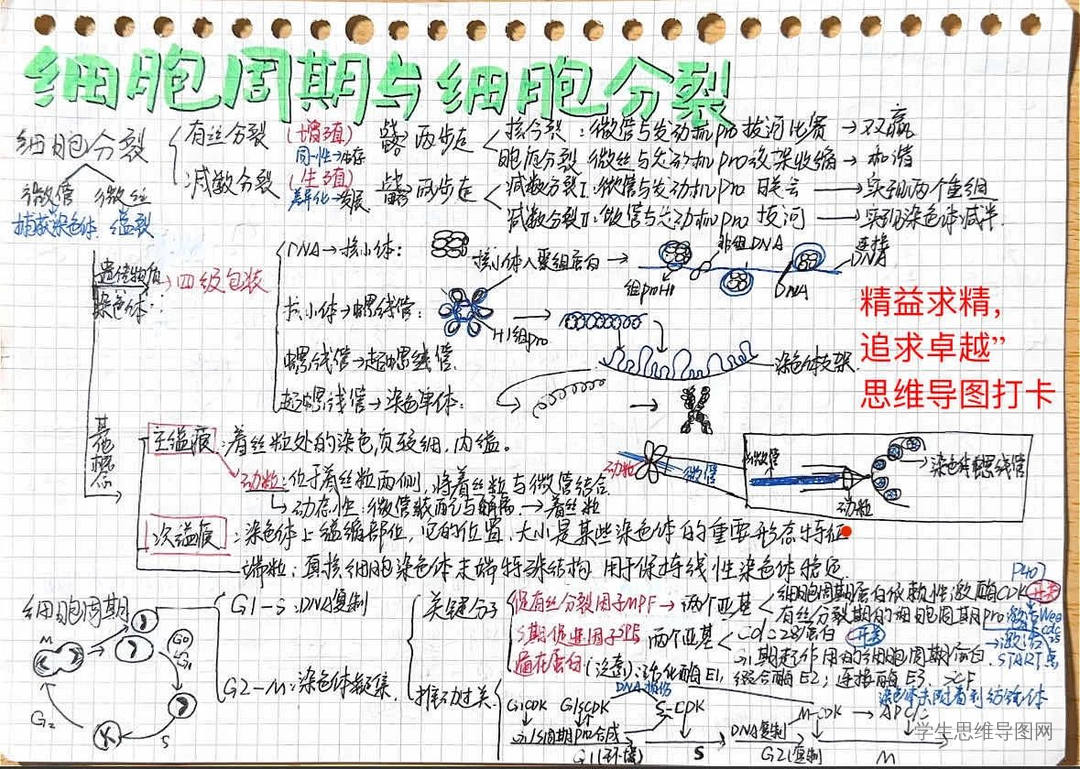 细胞周期与细胞分裂
细胞分裂
有丝分裂 (增殖) 两步走
同一性→生存
核分裂:微管与发动机pro拔河比赛→双赢
胞质分裂 微丝与发动机pro收缩→和谐
减数分裂 (生殖) 两步走
差异化→发展
减数分裂I:微管与发动机pro →实现两个重组
减数分裂II:微管与发动机pro拔河→实现染色体减半
微管 微丝
捕获染色体 缢裂
遗传物质→四级包装
染色体:
DNA→核小体:
核小体八聚组蛋白→
非组DNA
连接DNA
组proH1
DNA
核小体→螺线管:
H1组pro
螺线管→超螺线管.
染色体支架.
超螺线管→染色单体:
精益求精,
追求卓越”
思维导图打卡
其他概念
主缢痕:着丝粒处的染色质较细,内缢。
动粒:位于着丝粒两侧,将着丝粒与微管结合
动态性:微管 →着丝粒
动粒 微管
微管
染色体螺线管
动粒
次缢痕:染色体上缢缩部位,它的位置、大小是某些染色体的重要形态特征
端粒:真核细胞染色体末端特殊结构 用于保持线性染色体稳定.
细胞周期
M
G0
G1
S
G2
G1-S:DNA复制
G2-M:染色体凝集.
关键分子
促有丝分裂因子MPF→两个亚基
P407
细胞周期蛋白依赖性激酶CDK 开关
有丝分裂期的细胞周期pro 激活
S期促进因子SPF 两个亚基
Cdc28蛋白 开关
G1期起作用的细胞周期蛋白 START点
泛素蛋白(连素):活化酶E1,缀合酶E2,连接酶E3. SCF
推动过关
DNA损伤
染色体未附着到纺锤体
G1CDK G1SCDK S-CDK M-CDK→APC
G1S周期pro合成
DNA复制
S
M
学生思维导图网